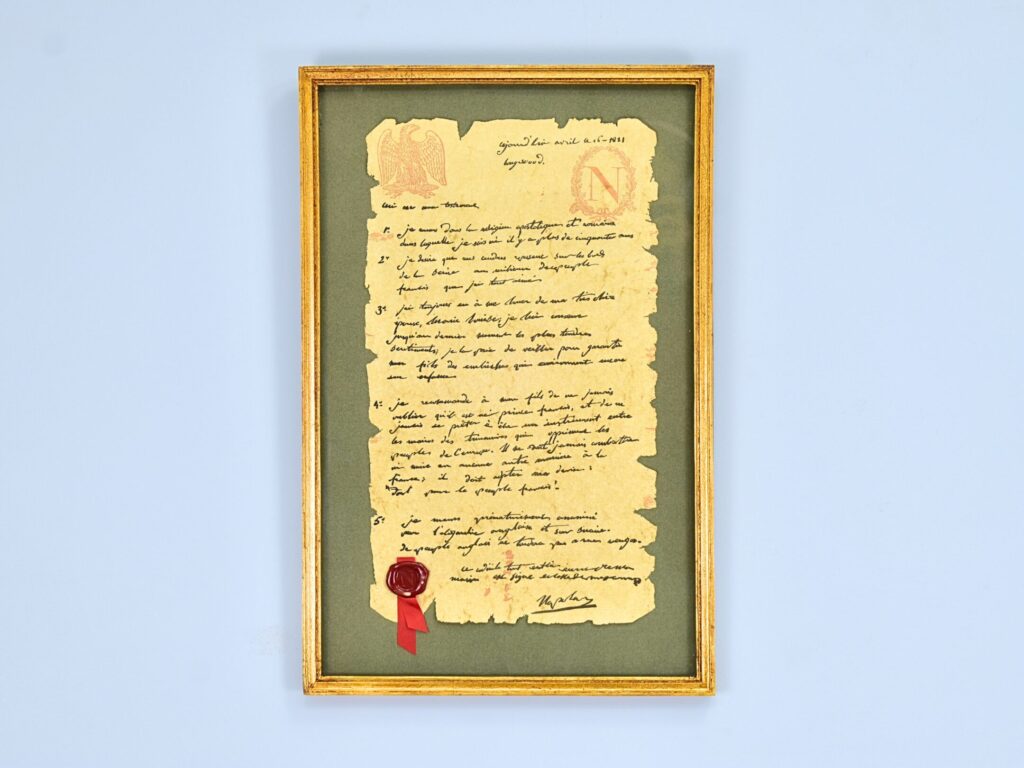 ajourd'hui avril le 16 - 1821
longwood.
N
Ceci est mon testament
1° je meurs dans la religion apostolique et romaine
dans laquelle je suis né il y a plus de cinquante ans
2° je désire que mes cendres reposent sur les bords
de la Seine au milieu de ce peuple
français que j'ai tant aimé
3° j'ai toujours eu à me louer de ma très chère
épouse, Marie Louise; je lui conserve
jusqu'au dernier moment les plus tendres
sentiments; je la prie de veiller pour garantir
mon fils des embûches qui environnent encore
son enfance
4° je recommande à mon fils de ne jamais
oublier qu'il est né prince français, et de ne
jamais se prêter à être un instrument entre
les mains des triumvirs qui oppriment les
peuples de l'europe. Il ne doit jamais combattre
ni nuire en aucune autre manière à la
france; il doit adopter ma devise:
"Tout pour le peuple français".
5° je meurs prématurément assassiné
par l'oligarchie anglaise et son sicaire.
le peuple anglais ne tardera pas à me venger.
ce tout entier
main est signé
Napoleon